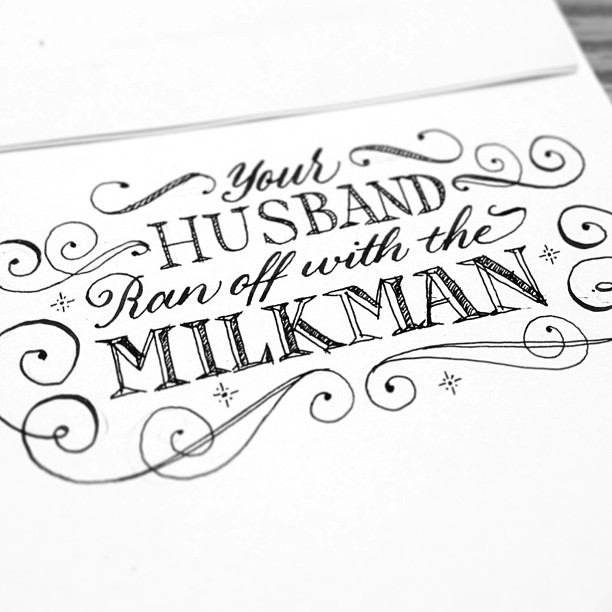 Your
HUSBAND
Ran off with the
MILKMAN